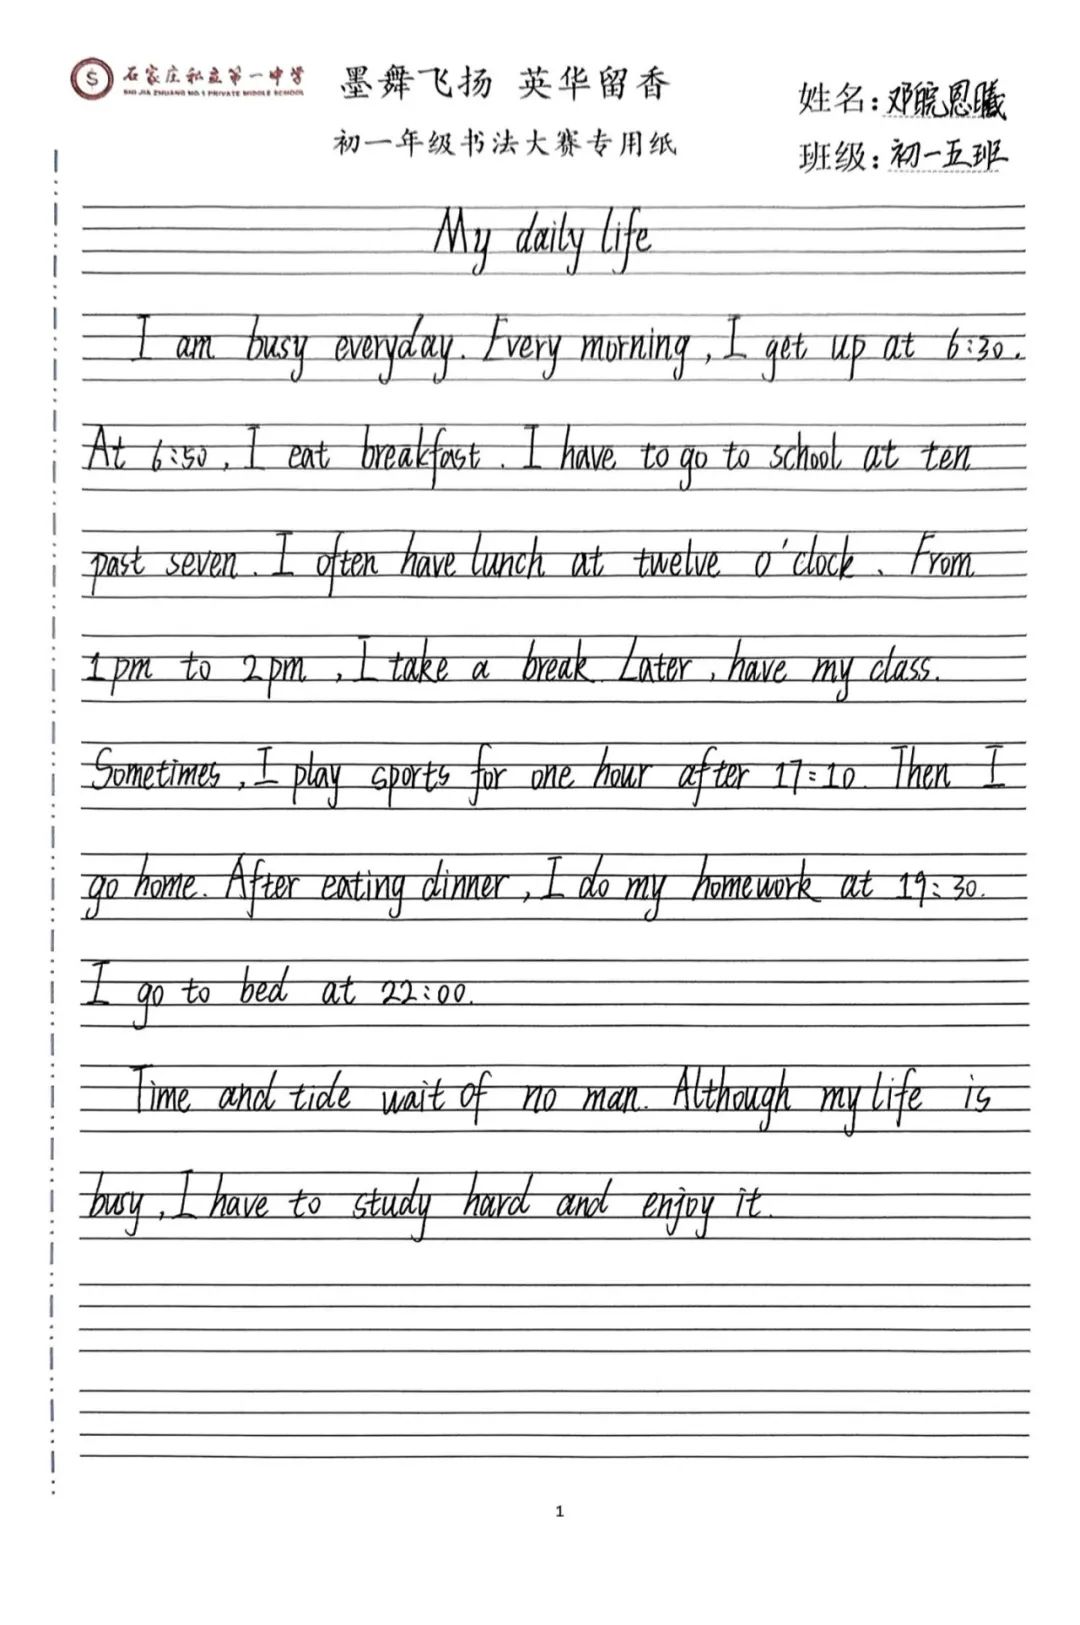 石家庄私立第一中学
SHI JIA ZHUANG NO.1 PRIVATE MIDDLE SCHOOL
墨舞飞扬 英华留香
初一年级书法大赛专用纸
姓名:邓皖恩曦
班级:初一五班
My daily life
I am busy everyday. Every morning, I get up at 6:30.
At 6:50, I eat breakfast. I have to go to school at ten
past seven. I often have lunch at twelve o'clock. From
1pm to 2pm, I take a break. Later, have my class.
Sometimes, I play sports for one hour after 17:10. Then I
go home. After eating dinner, I do my homework at 19:30.
I go to bed at 22:00.
Time and tide wait of no man. Although my life is
busy, I have to study hard and enjoy it.
1